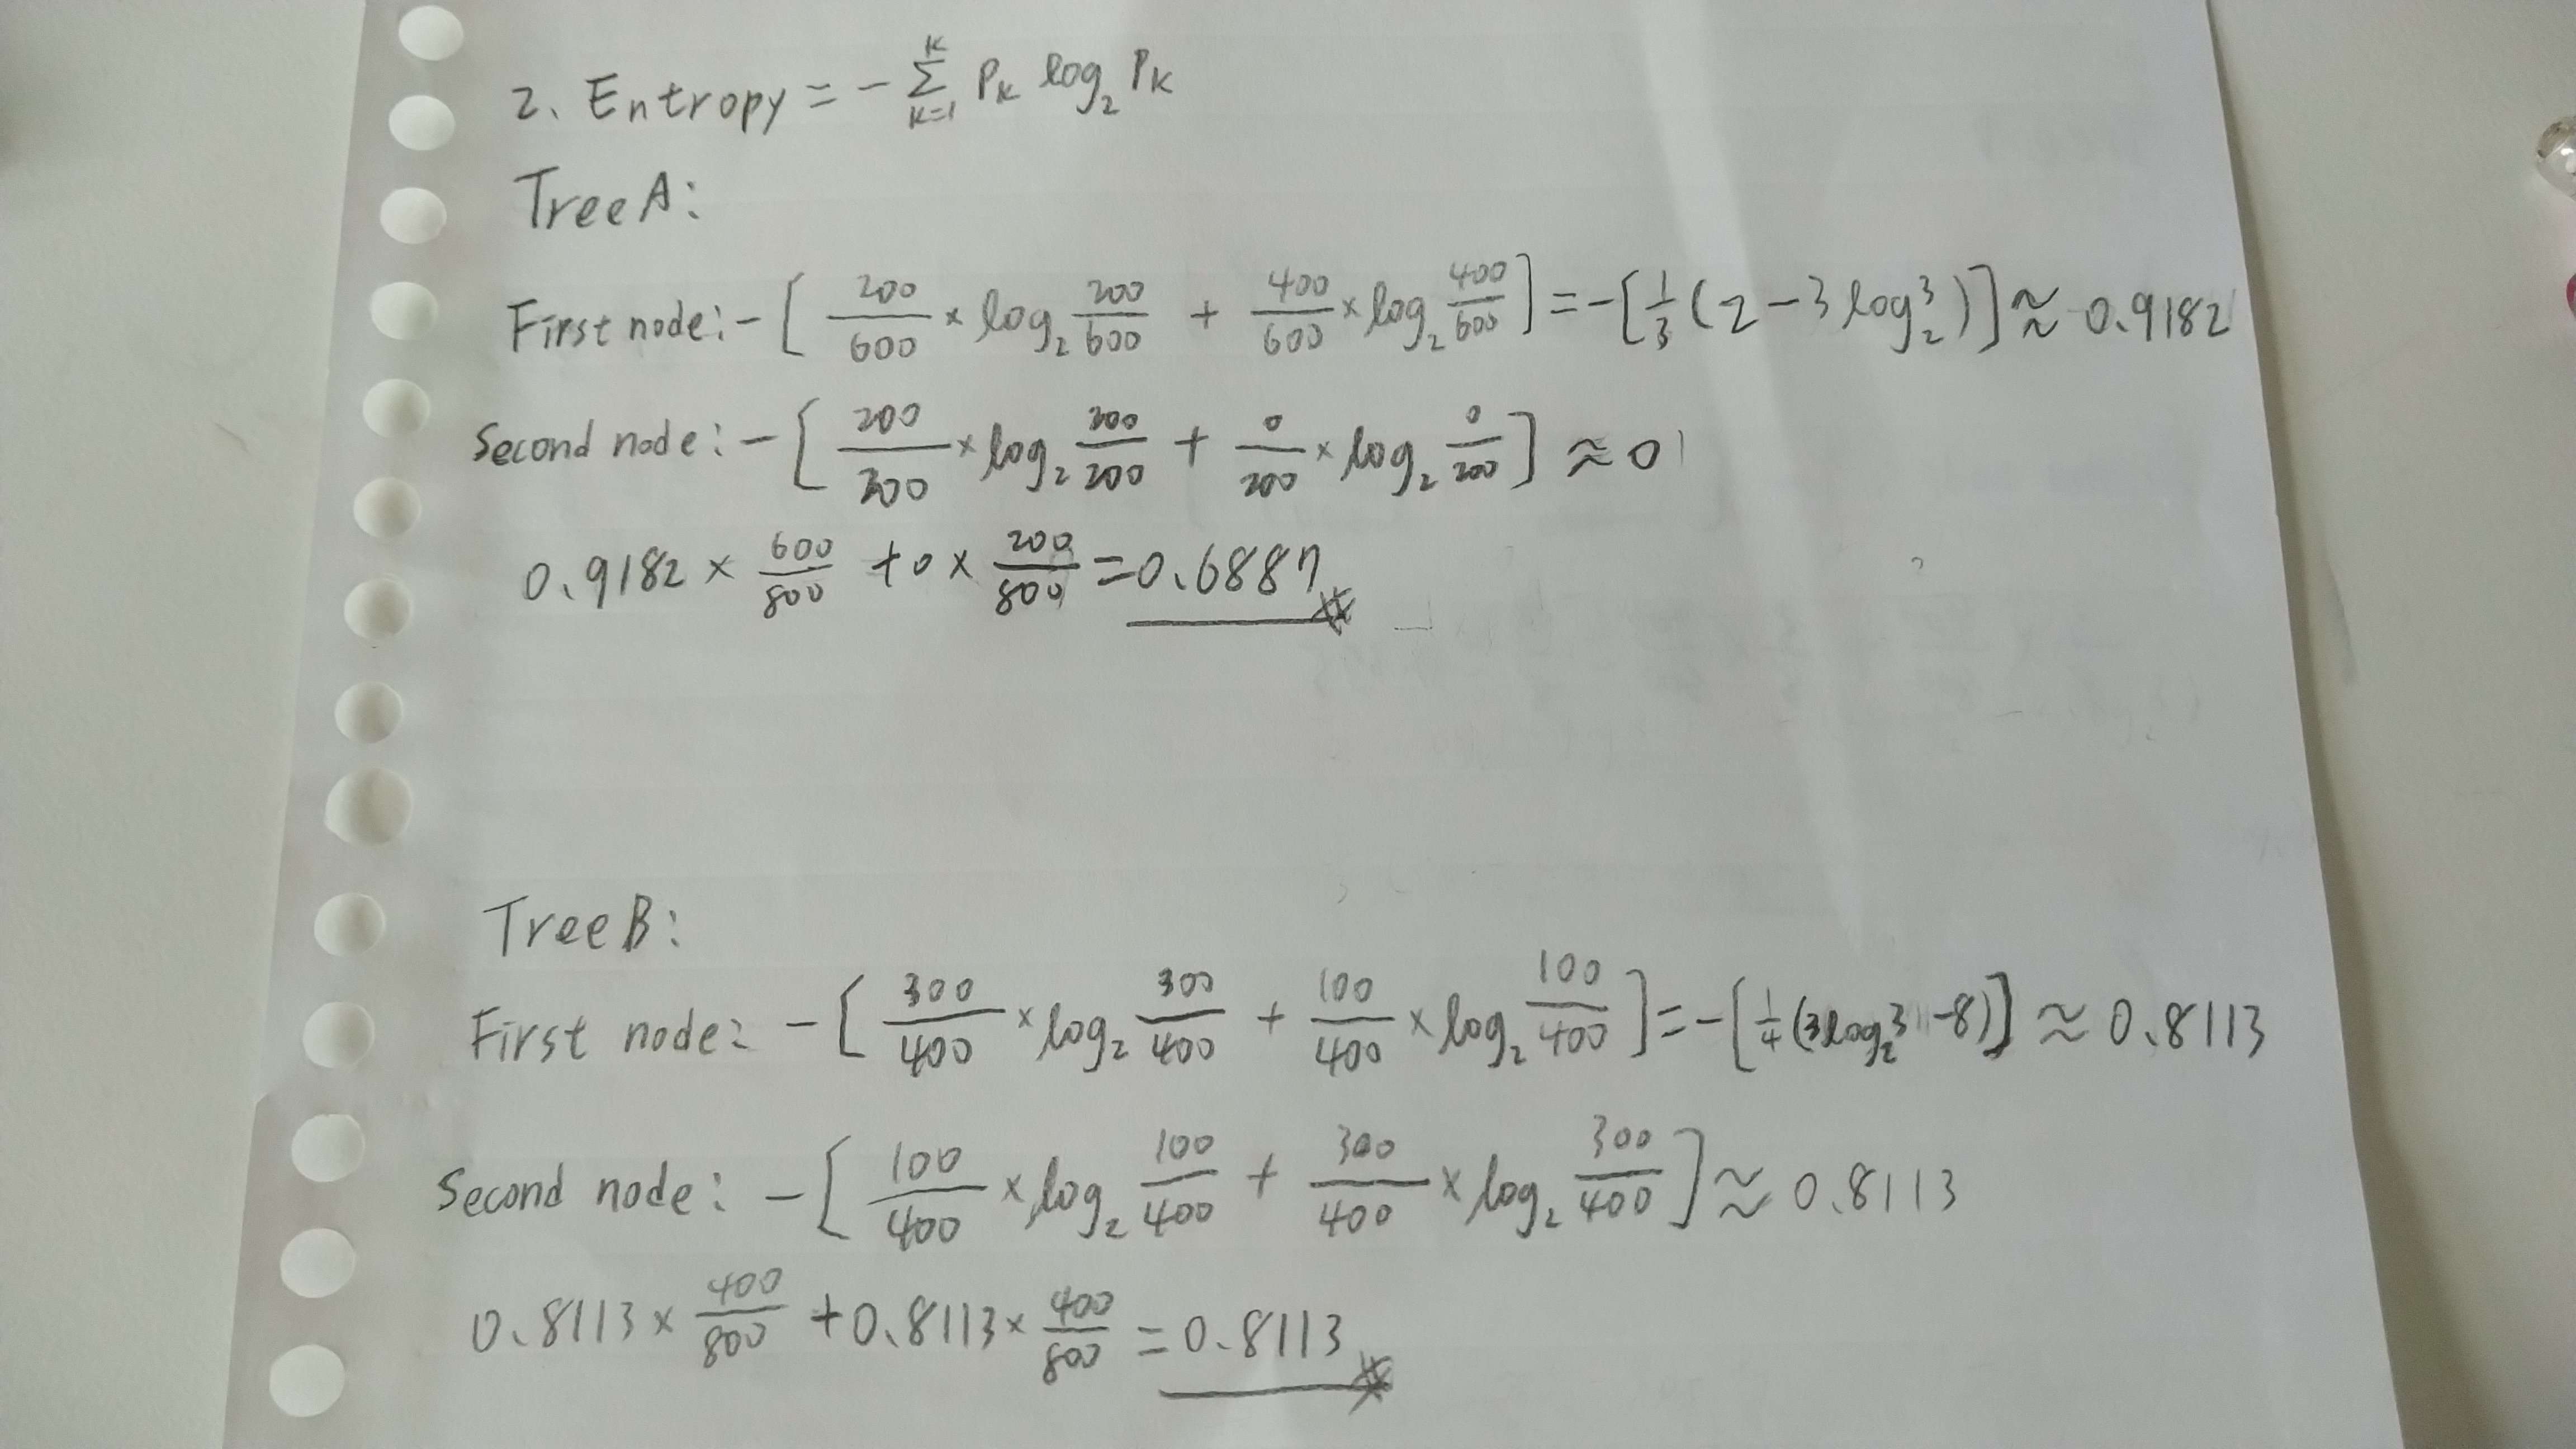 2. Entropy = -∑_{k=1}^{K} P_k log_2 P_k
Tree A:
First node: -[200/600 × log_2 200/600 + 400/600 × log_2 400/600] = -[1/3(2-3log_2^3)] ≈ 0.9182
Second node: -[200/200 × log_2 200/200 + 0/200 × log_2 0/200] ≈ 0
0.9182 × 600/800 + 0 × 200/800 = 0.6887
Tree B:
First node: -[300/400 × log_2 300/400 + 100/400 × log_2 100/400] = -[1/4(3log_2^3-8)] ≈ 0.8113
Second node: -[100/400 × log_2 100/400 + 300/400 × log_2 300/400] ≈ 0.8113
0.8113 × 400/800 + 0.8113 × 400/800 = 0.8113